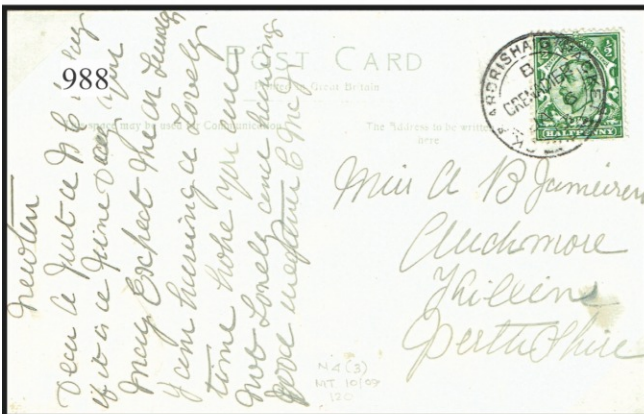 988
POST CARD
Printed in Great Britain
This space may be used for Communication
The Address to be written
here
GREENOCK & ARDRISHAIG PACKET
B
GRENADIER
HALFPENNY
Newton
Dear A Just a P.C. to say
if it is a fine day you
may Expect me on Sunday
I am having a Lovely
time hope you are
not Lonely and having
good weather
Miss A B Jamieson
Auchmore
Killin
Perthshire
N4(3)
NIT 10/09
120